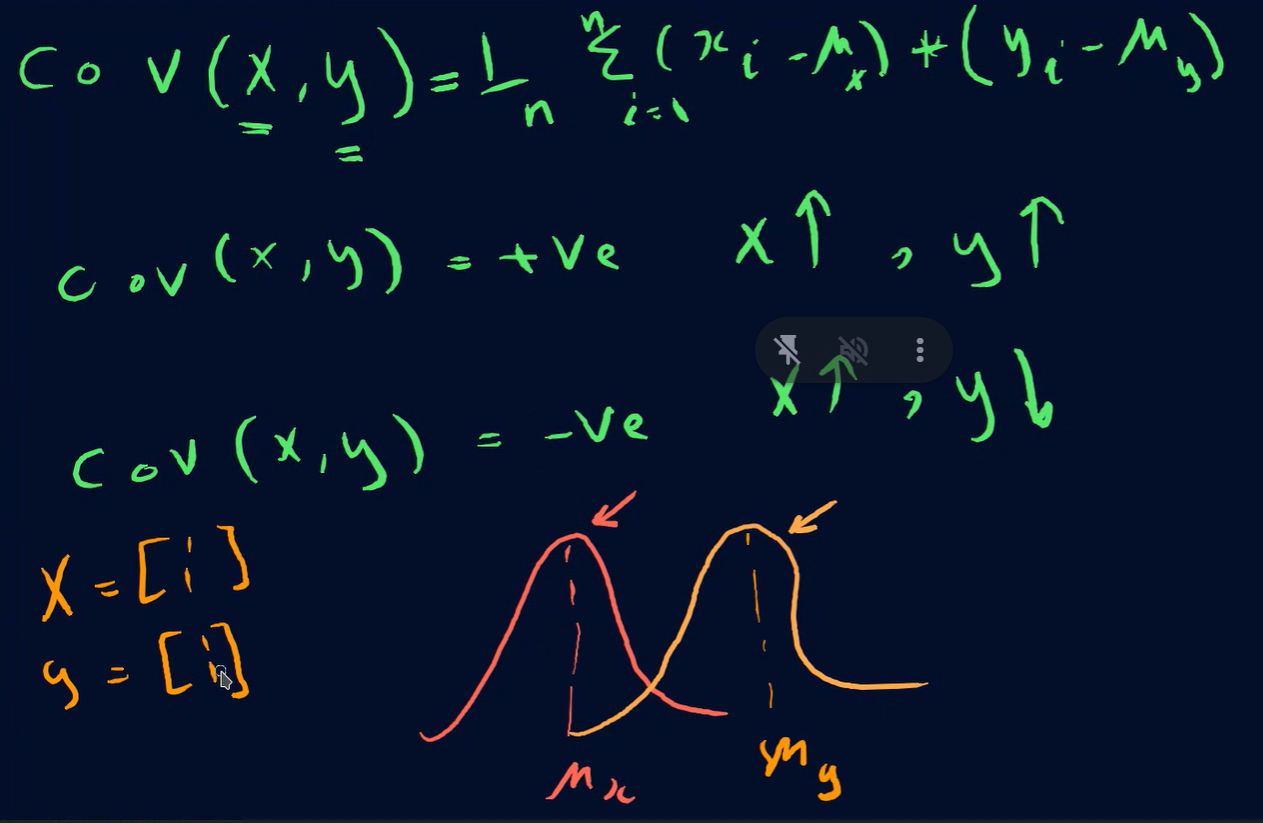 Cov(x,y) = 1/n Σ_{i=1}^{n} (x_i - μ_x) * (y_i - μ_y)
Cov(x,y) = +ve x↑, y↑
Cov(x,y) = -ve x↑, y↓
X = [ ¦ ]
y = [ ¦ ]
μ_x μ_y